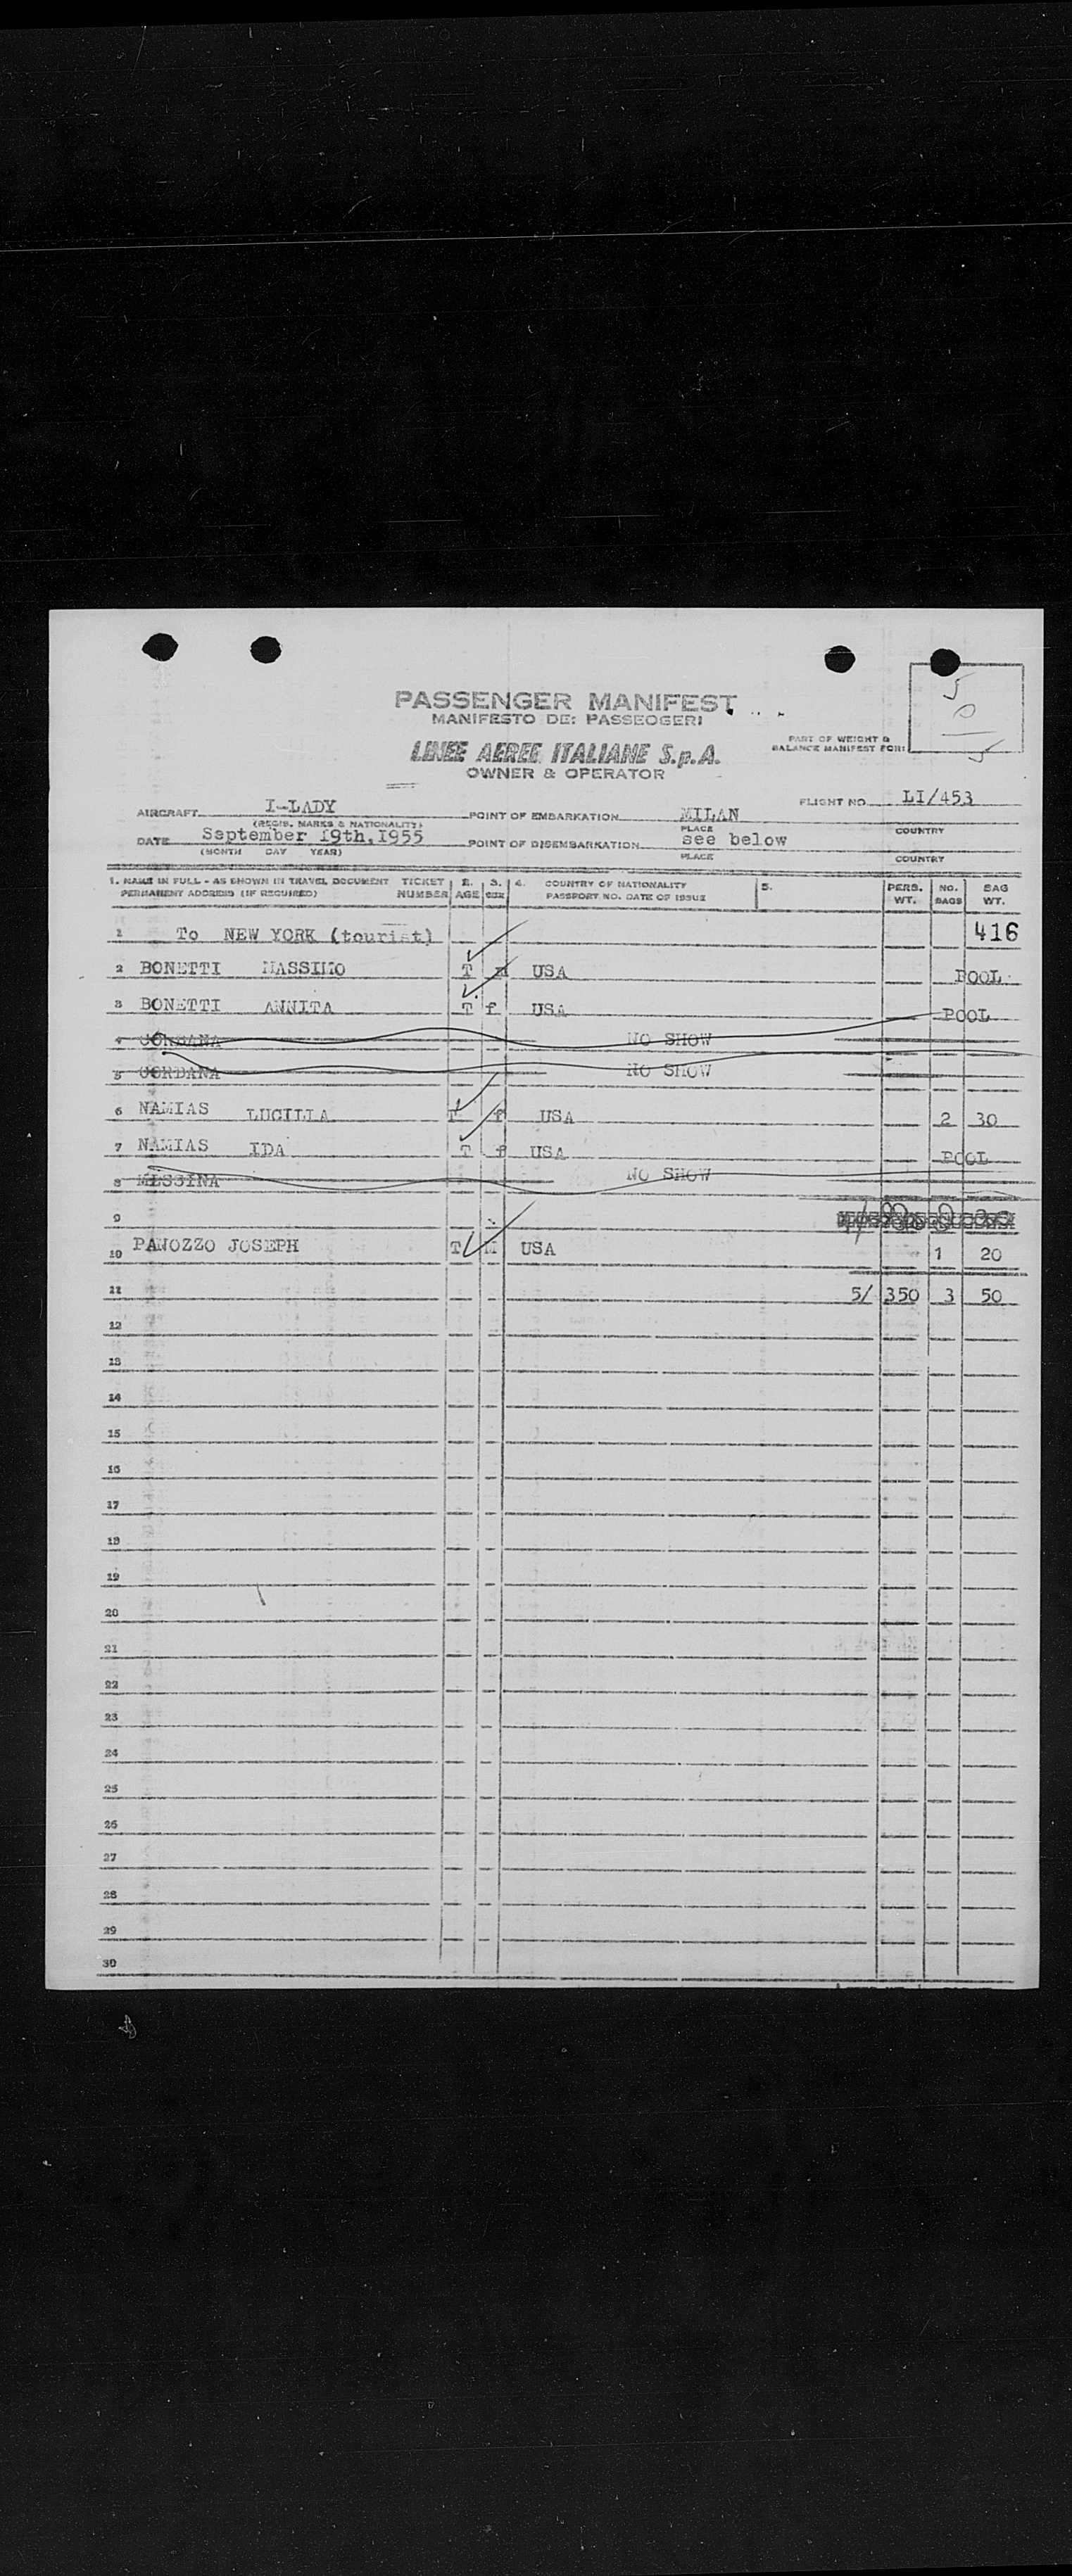 5
0
5
PASSENGER MANIFEST
MANIFESTO DEI PASSEGGERI
PART OF WEIGHT &
BALANCE MANIFEST FOR:
LINEE AEREE ITALIANE S.p.A.
OWNER & OPERATOR
AIRCRAFT I-LADY POINT OF EMBARKATION MILAN FLIGHT NO. LI/453
(REGIS. MARKS & NATIONALITY) PLACE COUNTRY
DATE September 19th,1955 POINT OF DISEMBARKATION see below
(MONTH DAY YEAR) PLACE COUNTRY
1. NAME IN FULL - AS SHOWN IN TRAVEL DOCUMENT TICKET 2. 3. 4. COUNTRY OF NATIONALITY 5. PERS. NO. BAG
PERMANENT ADDRESS (IF REQUIRED) NUMBER AGE SEX PASSPORT NO. DATE OF ISSUE WT. BAGS WT.
1 To NEW YORK (tourist) 416
2 BONETTI MASSIMO T m USA POOL
3 BONETTI ANNITA T f USA POOL
4 CORDANA NO SHOW
5 CORDANA NO SHOW
6 NAMIAS LUCILLA T f USA 2 30
7 NAMIAS IDA T f USA POOL
8 MESSINA NO SHOW
9
10 PANOZZO JOSEPH T M USA 1 20
11 5/ 350 3 50
12
13
14
15
16
17
18
19
20
21
22
23
24
25
26
27
28
29
30